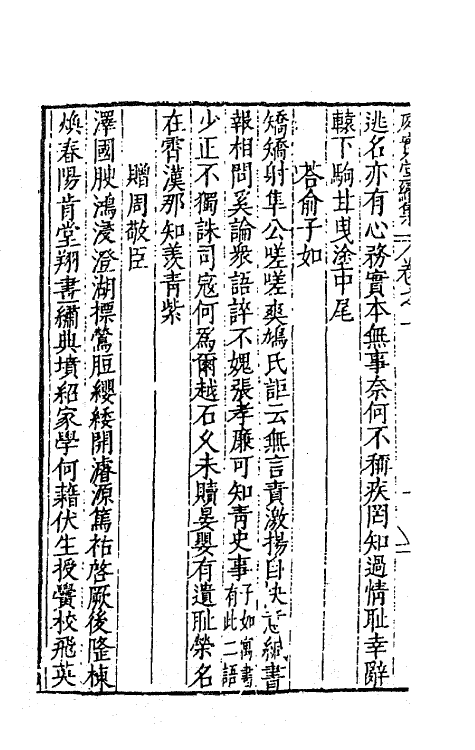 逃名亦有心務實本無事奈何不稱疾罔知過情耻幸辭
轅下駒甘曳塗中尾
答俞子如
矯矯射隼公嗟嗟爽鳩氏詎云無言責激揚自
報相問奚論衆語誶不媿張孝廉可知青史事子如寓書有此二語
少正不獨誅司寇何爲爾越石父未贖晏嬰有遺耻榮名
在霄漢那知羨青紫
贈周敬臣
澤國腴鴻浸澄湖標鶯脰纓緌開濬源篤祐啓厥後隆棟
煥春陽肯堂翔書繡典墳紹家學何藉伏生授黌校飛英